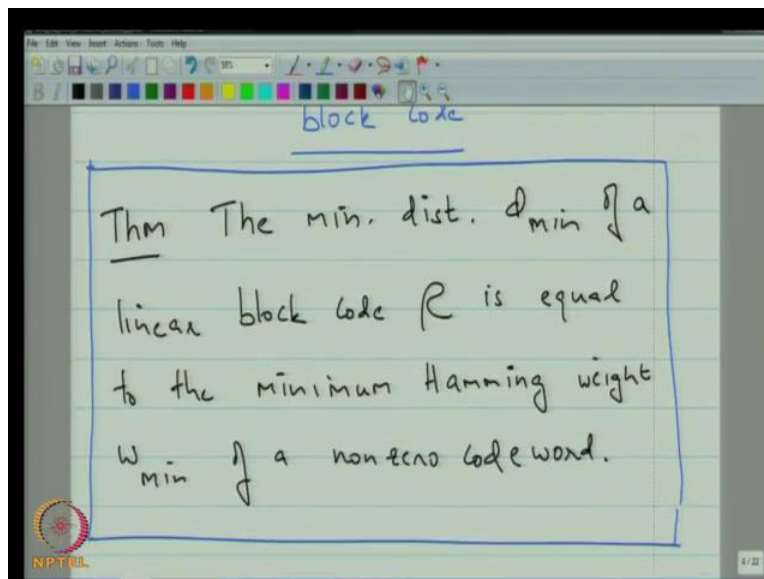 File Edit View Insert Actions Tools Help
block code
Thm The min. dist. d_min of a
linear block code C is equal
to the minimum Hamming weight
w_min of a nonzero codeword.
NPTEL